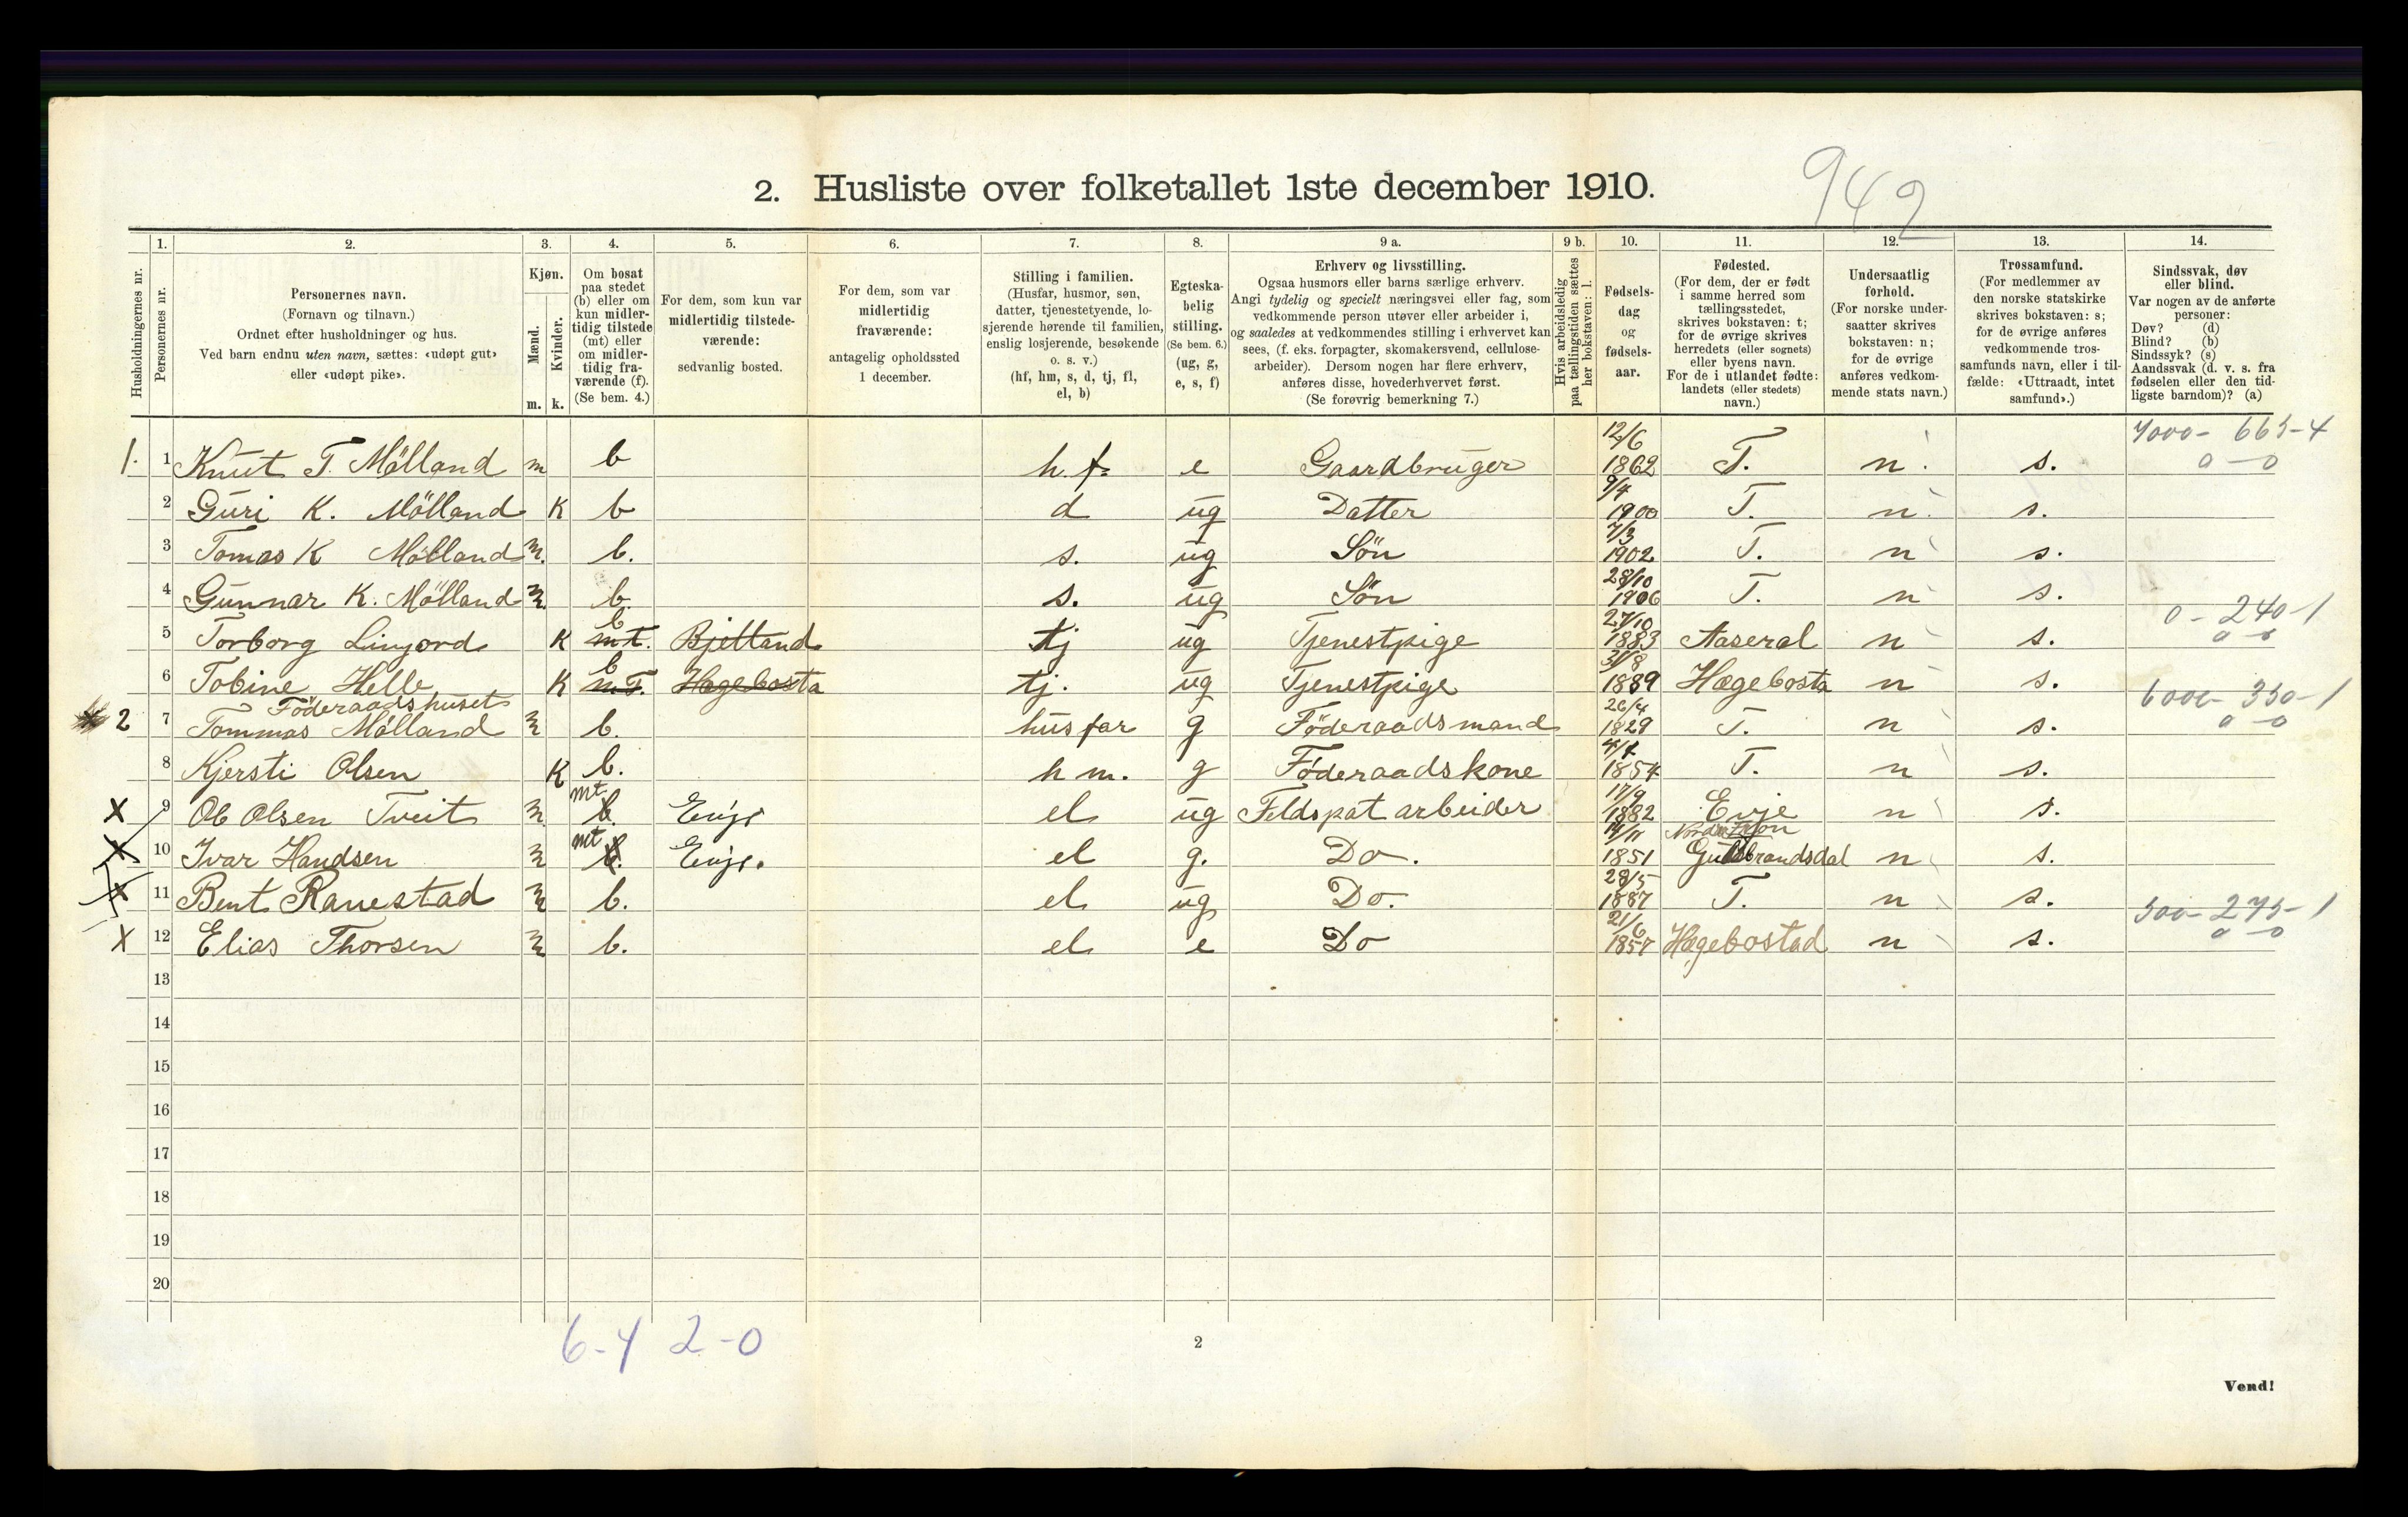 942
2. Husliste over folketallet 1ste december 1910.
Husholdningernes nr.
1. Personernes nr.
2. Personernes navn. (Fornavn og tilnavn.) Ordnet efter husholdninger og hus. Ved barn endnu uten navn, sættes: «udøpt gut» eller «udøpt pike».
3. Kjøn. Mænd. m. Kvinder. k.
4. Om bosat paa stedet (b) eller om kun midlertidig tilstede (mt) eller om midlertidig fraværende (f). (Se bem. 4.)
5. For dem, som kun var midlertidig tilstedeværende: sedvanlig bosted.
6. For dem, som var midlertidig fraværende: antagelig opholdssted 1 december.
7. Stilling i familien. (Husfar, husmor, søn, datter, tjenestetyende, losjerende hørende til familien, enslig losjerende, besøkende o. s. v.) (hf, hm, s, d, tj, fl, el, b)
8. Egteskabelig stilling. (Se bem. 6.) (ug, g, e, s, f)
9 a. Erhverv og livsstilling. Ogsaa husmors eller barns særlige erhverv. Angi tydelig og specielt næringsvei eller fag, som vedkommende person utøver eller arbeider i, og saaledes at vedkommendes stilling i erhvervet kan sees, (f. eks. forpagter, skomakersvend, cellulosearbeider). Dersom nogen har flere erhverv, anføres disse, hovederhvervet først. (Se forøvrig bemerkning 7.)
9 b. Hvis arbeidsledig paa tællingstiden sættes her bokstaven: l.
10. Fødselsdag og fødselsaar.
11. Fødested. (For dem, der er født i samme herred som tællingsstedet, skrives bokstaven: t; for de øvrige skrives herredets (eller sognets) eller byens navn. For de i utlandet fødte: landets (eller stedets) navn.)
12. Undersaatlig forhold. (For norske undersaatter skrives bokstaven: n; for de øvrige anføres vedkommende stats navn.)
13. Trossamfund. (For medlemmer av den norske statskirke skrives bokstaven: s; for de øvrige anføres vedkommende trossamfunds navn, eller i tilfælde: «Uttraadt, intet samfund».)
14. Sindssvak, døv eller blind. Var nogen av de anførte personer: Døv? (d) Blind? (b) Sindssyk? (s) Aandssvak (d. v. s. fra fødselen eller den tidligste barndom)? (a)
1. 1 Knut T. Mölland m b h.f. e Gaardbruger 12/6 1862 T. n. s. 7000- 665-4 0-0
2 Guri K. Mölland K b d ug Datter 9/4 1900 T. n. s.
3 Tomas K Mölland m. b. s. ug Sön 7/3 1902 T. n s.
4 Gunnar K. Mölland m b. s. ug Sön 28/10 1906 T. n s.
5 Torborg Linjord K mt. b Bjelland tj ug Tjenestpige 27/10 1883 Aaseral n s. 0-240-1
6 Tobine Helle K mT. b Hægebosta tj. ug Tjenestpige 31/8 1889 Hægebosta n s.
Föderaadshuset
2 7 Tommas Mölland m b. husfar g Föderaadsmand 26/4 1829 T. n s. 6000- 350-1 0-0
8 Kjersti Olsen K b. h m. g Föderaadskone 1854 T. n s.
X 9 Ole Olsen Tveit m b. mt Evje el ug Feldspat arbeider 17/9 1882 Evje n s.
X 10 Ivar Handsen m b. mt Evje. el g. Do. 14/11 1851 Gulbrandsdal n s.
X 11 Bent Ranestad m b. el ug Do. 28/5 1887 T. n s.
X 12 Elias Thorsen m b. el e Do 21/6 1857 Hægebostad n s. 500-275-1 0-0
13
14
15
16
17
18
19
20
6-4 2-0
2
Vend!